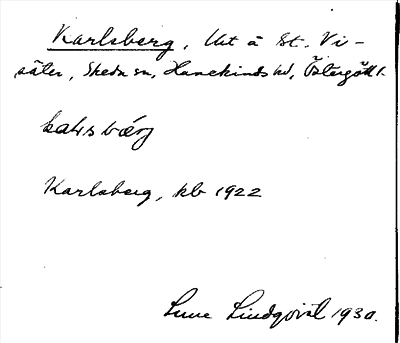 Karlsberg, Utt å St. Vi-
säter, Skeda sn, Hanekinds hd, Östergötl.
Karlsberg, kb 1922
Sune Lindqvist 1930.